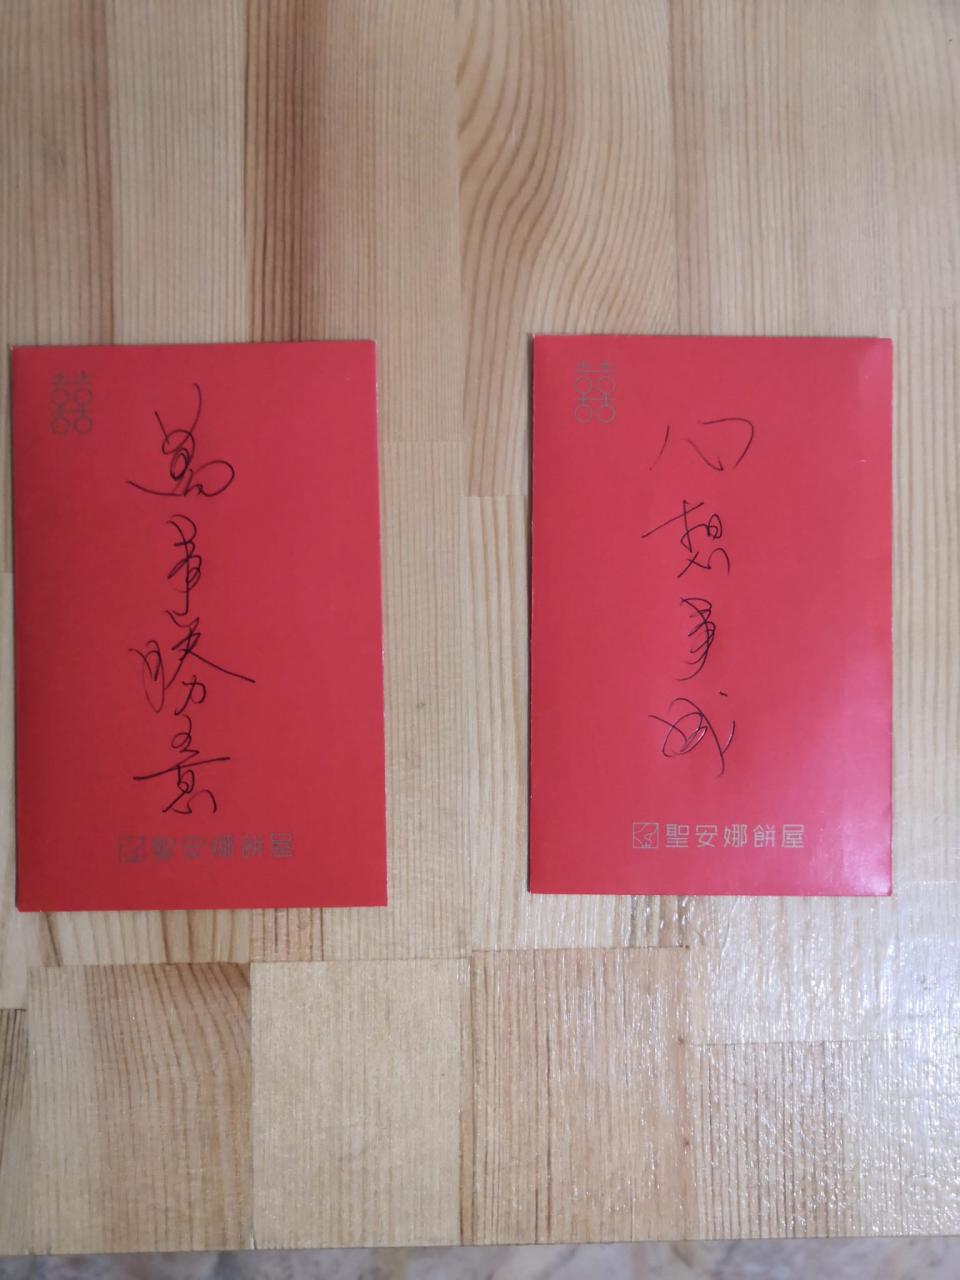 囍
萬事勝意
聖安娜餅屋
囍
心想事成
聖安娜餅屋